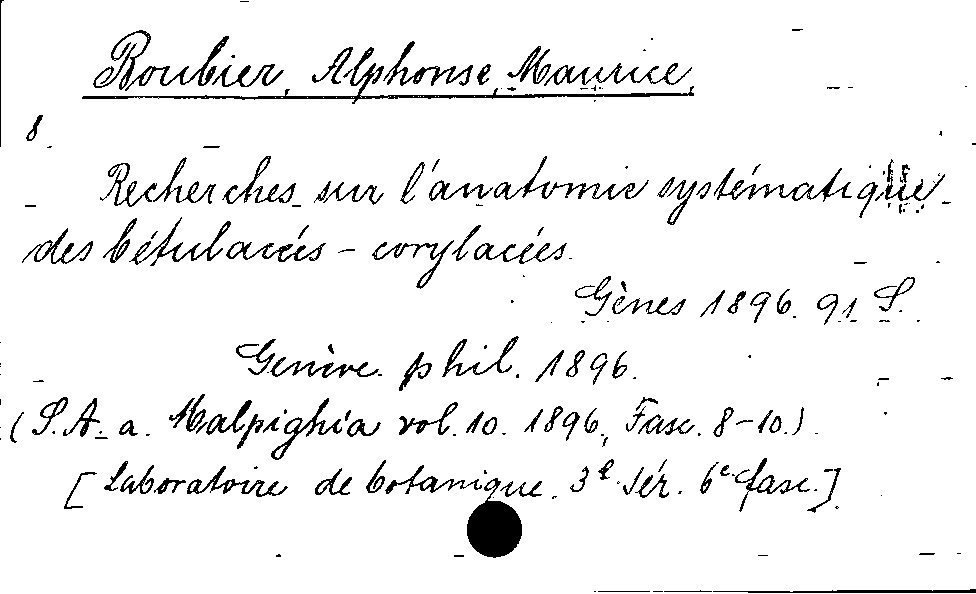 Roubier, Alphonse, Maurice,
8.
Recherches sur l'anatomie systématique
des bétulacées - corylacées.
Gènes 1896. 91 S.
Genève. phil. 1896.
(S. A. a. Malpighia vol. 10. 1896, Fasc. 8-10.)
[Laboratoire de botanique. 3e Sér. 6e fasc.]